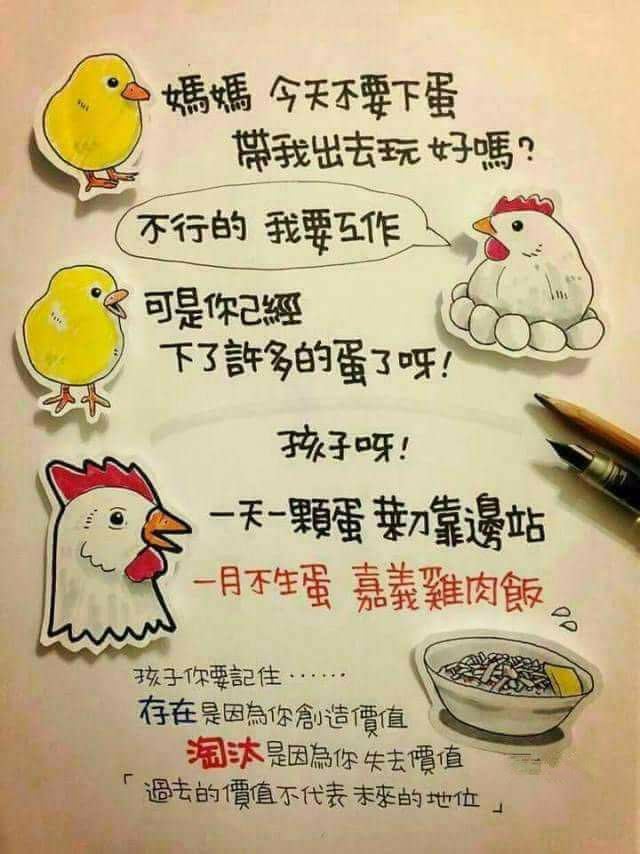 媽媽 今天不要下蛋
帶我出去玩 好嗎?
不行的 我要工作
可是你已經
下了許多的蛋了呀!
孩子呀!
一天一顆蛋 菜刀靠邊站
一月不生蛋 嘉義雞肉飯
孩子你要記住……
存在是因為你創造價值
淘汰是因為你失去價值
「過去的價值不代表未來的地位」